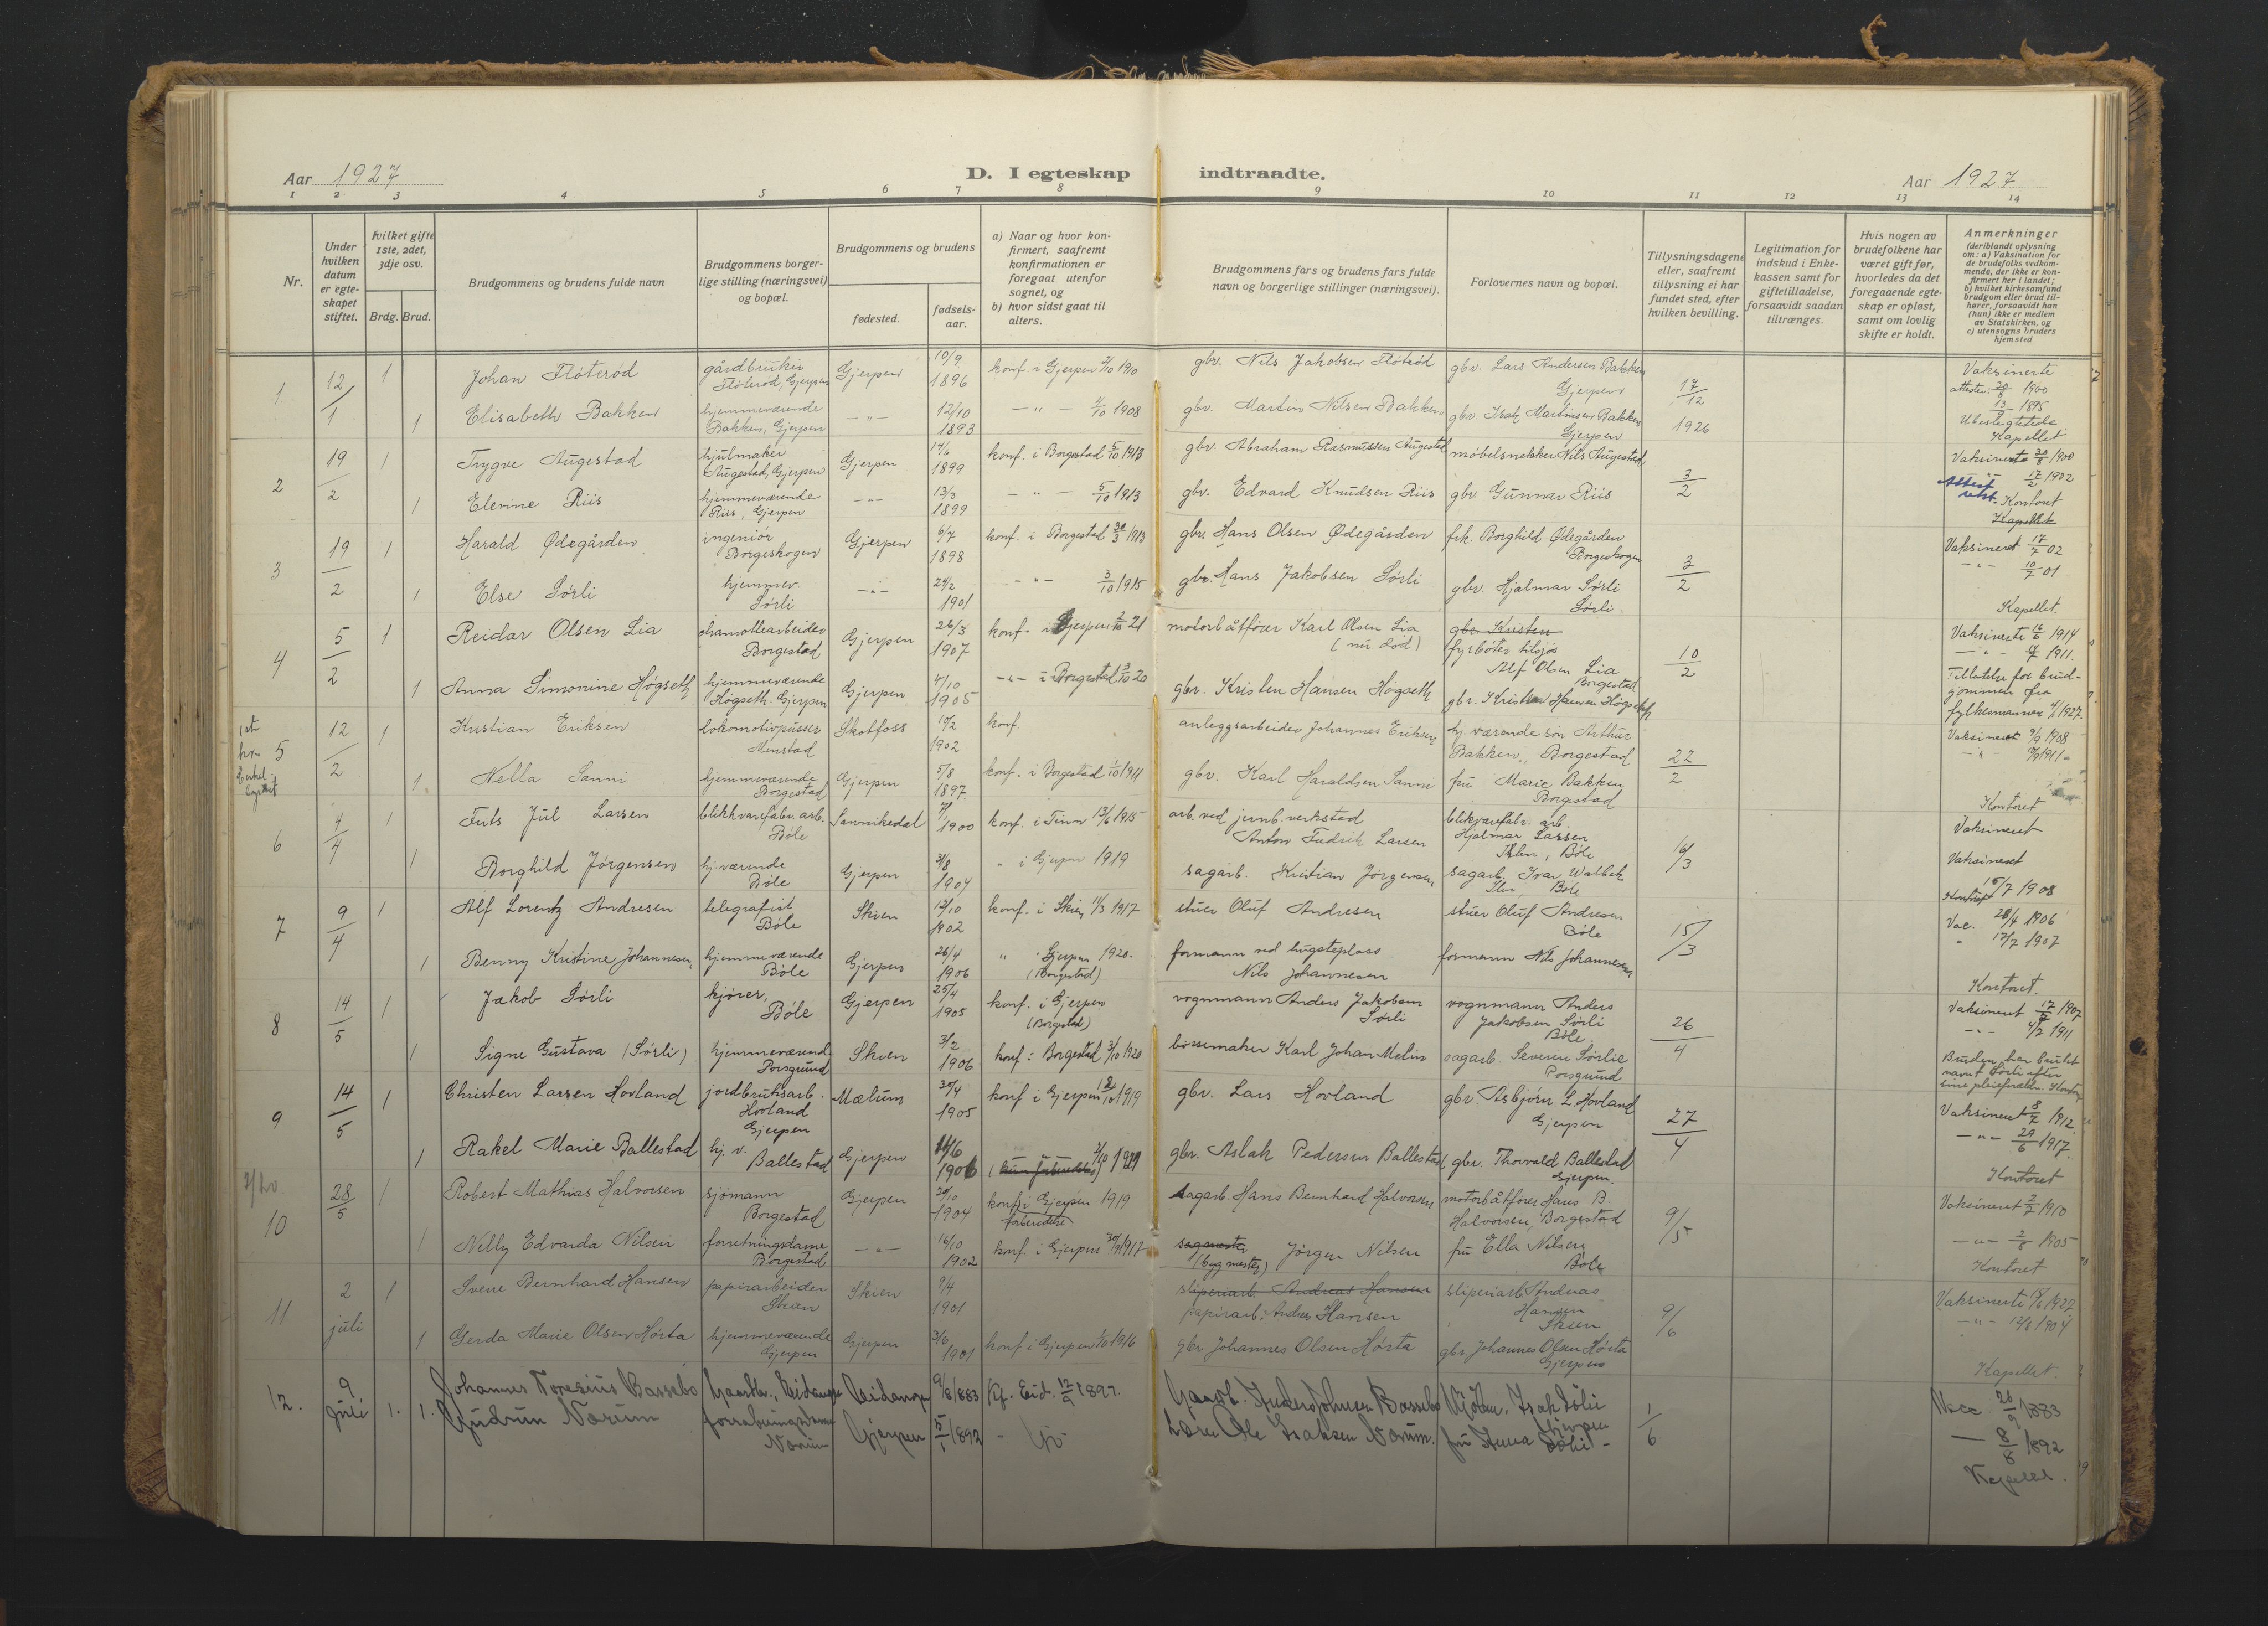 Aar 1927
D. I egteskap indtraadte.
Aar 1927
1 2 3 4 5 6 7 8 9 10 11 12 13 14
Nr.
Under hvilken datum er egteskapet stiftet.
Hvilket gifte 1ste, 2det, 3dje osv.
Brdg. Brud.
Brudgommens og brudens fulde navn
Brudgommens borgerlige stilling (næringsvei) og bopæl.
Brudgommens og brudens
fødested.
fødselsaar.
a) Naar og hvor konfirmert, saafremt konfirmationen er foregaat utenfor sognet, og
b) hvor sidst gaat til alters.
Brudgommens fars og brudens fars fulde navn og borgerlige stillinger (næringsvei).
Forlovernes navn og bopæl.
Tillysningsdagene eller, saafremt tillysning ei har fundet sted, efter hvilken bevilling.
Legitimation for indskud i Enkekassen samt for giftetilladelse, forsaavidt saadan tiltrænges.
Hvis nogen av brudefolkene har været gift før, hvorledes da det foregaaende egteskap er opløst, samt om lovlig skifte er holdt.
Anmerkninger
(deriblandt oplysning om: a) Vaksination for de brudefolks vedkommende, der ikke er konfirmert her i landet; b) hvilket kirkesamfund brudgom eller brud tilhører, forsaavidt han (hun) ikke er medlem av Statskirken, og c) utensogns bruders hjemsted
1 12/1 1 Johan Fløterød gårdbruker Fløterød, Gjerpen Gjerpen 10/9 1896 konf. i Gjerpen 2/10 1910 gbr. Nils Jakobsen Fløterød gbr. Lars Andersen Bakken Gjerpen 17/12 1926 Vaksinerte
1 Elisabeth Bakken hjemmeværende Bakken, Gjerpen -"- 12/10 1893 -"- 4/10 1908 gbr. Martin Nilsen Bakken gbr. Isak Martinsen Bakken Gjerpen Ubeslegtede Kapellet
2 19/2 1 Trygve Augestad hjulmaker Augestad, Gjerpen Gjerpen 14/6 1899 konf. i Borgestad 5/10 1913 gbr. Abraham Rasmussen Augestad møbelsnekker Nils Augestad 3/2 Vaksinerte 30/8 1900
1 Elevine Riis hjemmeværende Riis, Gjerpen -"- 13/3 1899 -"- 5/10 1913 gbr. Edvard Knudsen Riis gbr Gunnar Riis 17/2 1902 Attest Kontoret Kapellet
3 19/2 1 Harald Ødegården ingeniør Borgeskogen Gjerpen 6/7 1898 konf. i Borgestad 30/3 1913 gbr. Hans Olsen Ødegården frk. Borghild Ødegården Borgeskogen 3/2 Vaksineret 17/7 02
1 Else Sørli hjemmev. Sørli -"- 24/2 1901 -"- 3/10 1915 gbr. Hans Jakobsen Sørli gbr. Hjalmar Sørli Sørli -"- 10/7 01 Kapellet.
4 5/2 1 Reidar Olsen Lia chamottearbeider Borgestad Gjerpen 26/3 1907 konf. i Gjerpen 2/10 21 motorbåtfører Karl Olsen Lia (nu død) gbr. Kristen fyrbøter tilsjøs Alf Olsen Lia Borgestad 10/2 Vaksinerte 16/6 1914
1 Anna Simonine Høgseth hjemmeværende Høgseth. Gjerpen Gjerpen 4/10 1905 -"- i Borgestad 3/10 20 gbr. Kristen Hansen Høgseth gbr. Kristen Hansen Høgseth 1911. Tillatelse for brudgommen fra fylkesmannen 1927.
5 12/2 1 Kristian Eriksen lokomotivpusser Menstad Skotfoss 10/2 1902 konf. anleggsarbeider Johannes Eriksen hj. værende søn Arthur Bakken, Borgestad 22/2 Vaksineret 1908
1 Nella Sanni hjemmeværende Borgestad Gjerpen 5/8 1897 konf. i Borgestad 1/10 1911 gbr. Karl Haraldsen Sanni fru Marie Bakken Borgestad 1911 Kontoret
6 4/4 1 Frits Jul Larsen blikkvarefabr. arb. Bøle Sannikedal 1900 konf. i Tinn 13/6 1915 arb. ved jernb. verksted Anton Fredrik Larsen blikvarefabr. arb. Hjalmar Larsen Bøle 16/3 Vaksineret
1 Borghild Jørgensen hj. værende Bøle Gjerpen 31/8 1904 " i Gjerpen 1919 sagarb. Kristian Jørgensen sagarb. Ivar Walbek Bøle Vaksineret 15/7 1908 Kontoret
7 9/4 1 Alf Lorentz Andresen telegrafist Bøle Skien 12/10 1902 konf. i Skien 11/3 1917 stuer Oluf Andresen stuer Oluf Andresen Bøle 15/3 Vac. 28/4 1906
1 Benny Kristine Johannesen hjemmeværende Bøle Gjerpen 26/4 1906 " Gjerpen 1920. (Borgestad) formann ved lugsteplass Nils Johannesen formann Nils Johannesen " 17/7 1907 Kontoret.
8 14/5 1 Jakob Sørli kjører, Bøle Gjerpen 25/4 1905 konf. i Gjerpen (Borgestad) vognmann Anders Jakobsen Sørli vognmann Anders Jakobsen Sørli Bøle 26/4 Vaksineret 1907
1 Signe Gustava (Sørli) hjemmeværende Porsgrund Skien 3/2 1906 konf. i Borgestad 3/10 1920 børsemaker Karl Johan Melin sagarb. Severin Sørlie Porsgrund -"- 4/7 1911 Bruden har brukt navnet Sørli efter sine pleieforeldre. Kontoret
9 14/5 1 Christen Larsen Hovland jordbruksarb. Hovland Gjerpen Mælum 30/4 1905 konf i Gjerpen 1919 gbr. Lars Hovland gbr. Asbjørn L. Hovland Gjerpen 27/4 Vaksineret 8/7 1912
1 Rakel Marie Ballestad hj. v. Ballestad Gjerpen 14/6 1906 2/10 1921 gbr. Aslak Pedersen Ballestad gbr. Thorvald Ballestad Gjerpen. -"- 29/6 1917. Kontoret
10 28/5 1 Robert Mathias Halvorsen sjømann Borgestad Gjerpen 20/10 1904 konf i Gjerpen 1919 forberedelse sagarb. Hans Bernhard Halvorsen motorbåtfører Hans B. Halvorsen, Borgestad 9/5 Vaksineret 2/7 1910
1 Nelly Edvarda Nilsen forretningsdame Borgestad -"- 16/10 1902 konf i Gjerpen 30/9 1917 sagmester (bygmester) Jørgen Nilsen fru Ella Nilsen Bøle -"- 2/8 1905 Kontoret
11 2 juli 1 Sverre Bernhard Hansen papirarbeider Skien Skien 9/4 1901 sliperiarb. Andreas Hansen papirarb. Andreas Hansen sliperiarb. Andreas Hansen Skien 9/6 Vaksinerte 1927
1 Gerda Marie Olsen Hørta hjemmeværende Gjerpen Gjerpen 3/6 1901 konf i Gjerpen 1/10 1916 gbr. Johannes Olsen Hørta gbr. Johannes Olsen Hørta Gjerpen -"- 12/8 1904 Kapellet.
12. 9 Juli 1. Johannes Toresius Bassebo Gaardbr., Eidanger Eidanger 9/8 1883 Kf. Eid. 12/9 1897. Gaardb. Anders Johnsen Bassebo Isak Sølie Gjerpen 1/6 Vacc. 26/9 1883
1. Gudrun Nærum forretningsdame Nærum Gjerpen 5/1 1892 - Gj. Lærer Ole Isaksen Nærum. fru Anna Sølie - 8/8 1892 Kapellet.